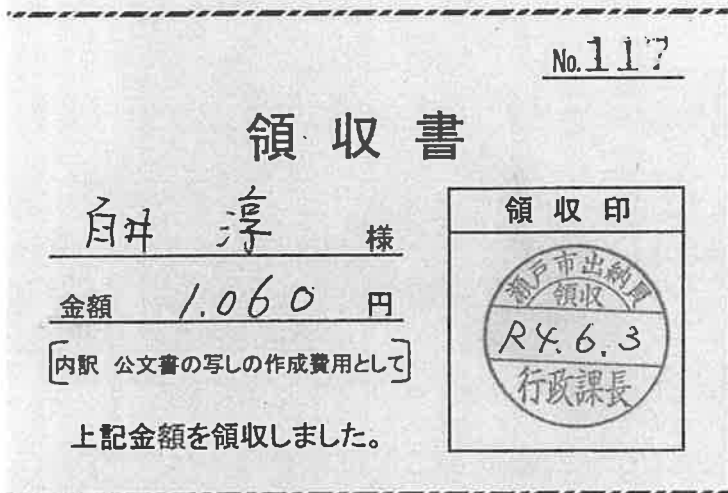 No.117
領収書
臼井 淳 様
金額 1.060 円
[内訳 公文書の写しの作成費用として]
上記金額を領収しました。
領収印
瀬戸市出納員
領収
R4.6.3
行政課長